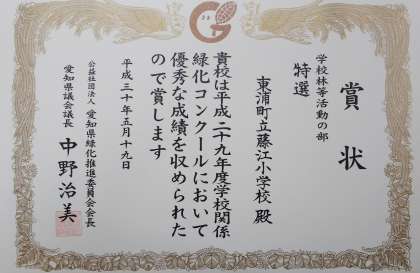 賞状
学校林等活動の部
特選
東浦町立藤江小学校殿
貴校は平成二十九年度学校関係
緑化コンクールにおいて
優秀な成績を収められた
ので賞します
平成三十年五月十九日
公益社団法人 愛知県緑化推進委員会会長
愛知県議会議長 中野治美